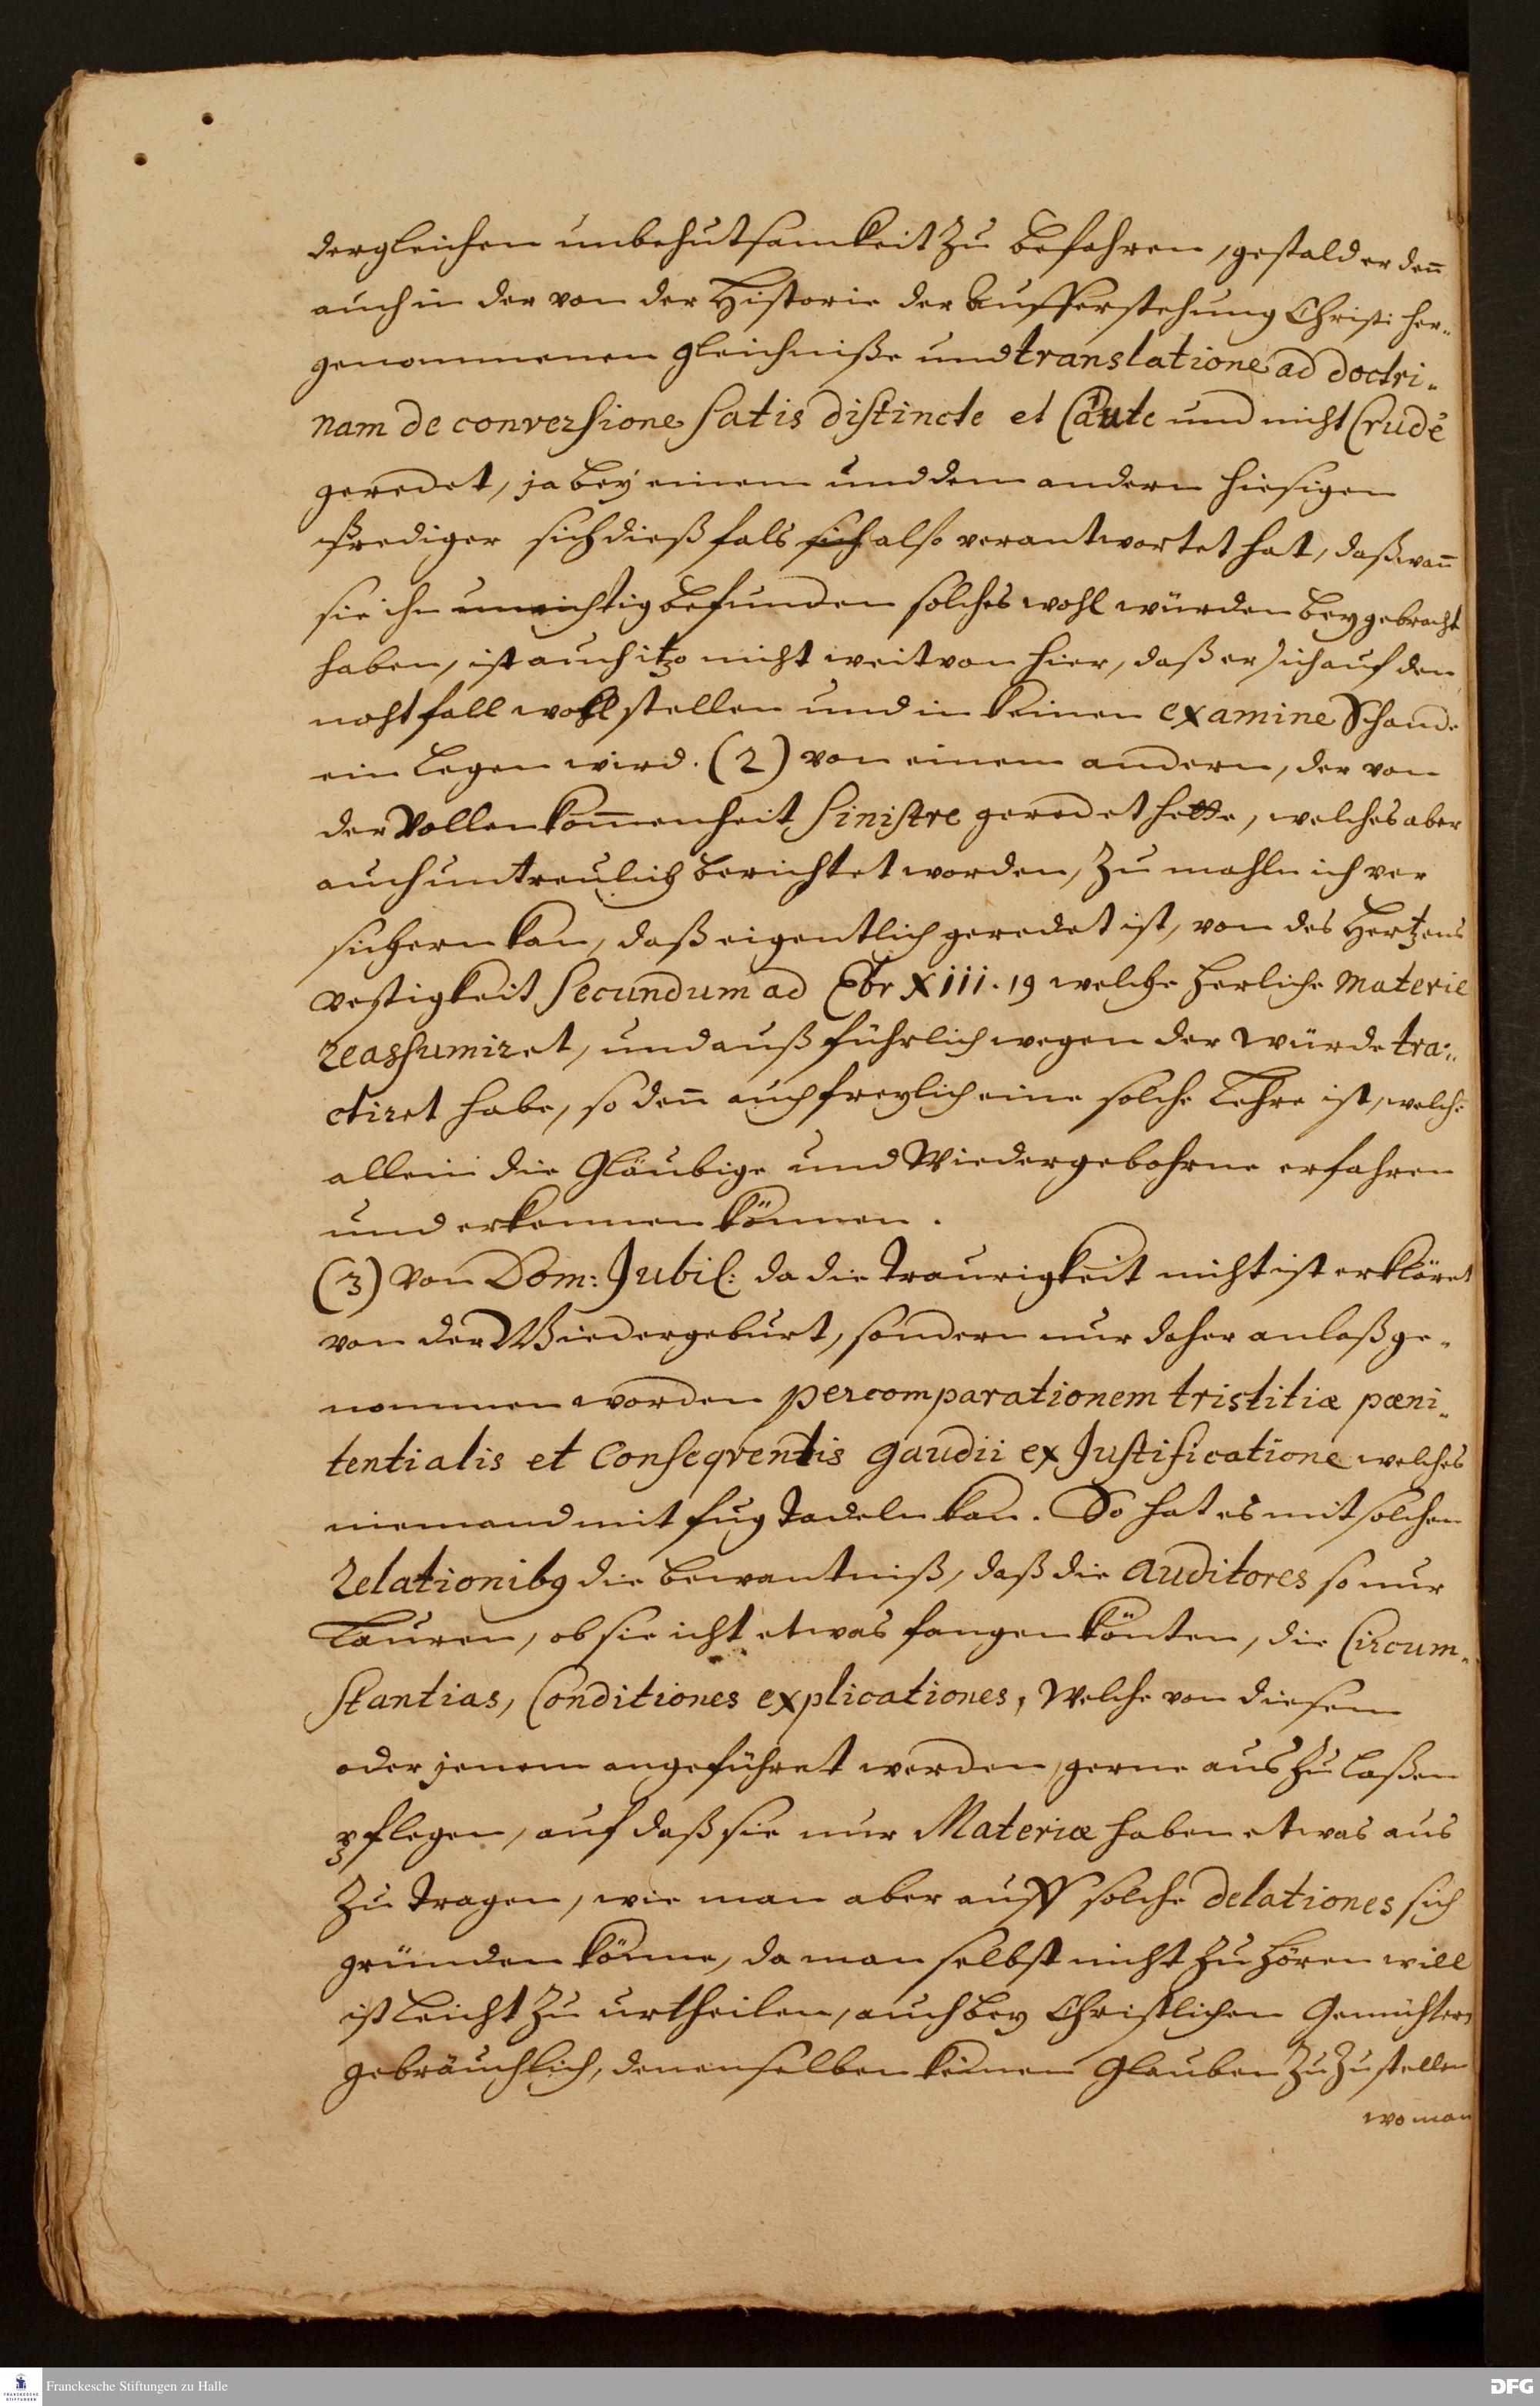 dergleichen unbehutsamkeit zu befahren, gestald er deñ
auch in der von der Historie der Aufferstehung Christi her-
genommenen gleichniße und translatione ad doctri-
nam de conversione satis distincte et Caute und nicht Crudè
geredet, ja bey einem und dem andern hiesigen
Prediger sich dießfals sich also verantwortet hat, daß wañ
sie ihn unrichtig befunden solches wohl würden beygebracht
haben, ist auch itzo nicht weit von hier, daß er sich auf den
nohtfall wohl stellen und in keinen examine Schande
ein legen wird. (2) von einem andern, der von
der Vollenkom̅enheit sinistre geredet hette, welches aber
auch untreulich berichtet worden, zu mahln ich ver
sichern kan, daß eigentlich geredet ist, von des Hertzens
vestigkeit secundum ad Ebr XIII. 19 welche herliche materie
reassumiret, und außführlich wegen der würde tra-
ctiret habe, so deñ auch freylich eine solche Lehre ist, welche
allein die Gläubige und Wiedergebohrne erfahren
und erkennen können.
(3) Von Dom: Jubil: da die Traurigkeit nicht ist erkläret
von der Wiedergeburt, sondern nur daher anlaß ge-
nommen worden per comparationem tristitiæ pæni-
tentialis et Conseqventis gaudii ex Justificatione welches
niemand mit fug tadeln kan. So hat es mit solchen
Relationibq die bewantniß, daß die Auditores so nur
lauren, ob sie icht etwas fangen könten, die Circum-
stantias, Conditiones explicationes, Welche von diesem
oder jenem angeführet werden, gerne aus zu laßen
pflegen, auf daß sie nur Materiæ haben etwas aus
zu tragen, wie man aber auff solche delationes sich
gründen könne, da man selbst nicht zu hören will
ist leicht zu urtheilen, auch bey Christlichen Gemühtern
gebräuchlich, denenselben keinen Glauben zu zustellen
wo man
Franckesche Stiftungen zu Halle
FRANCKESCHE STIFTUNGEN
DFG